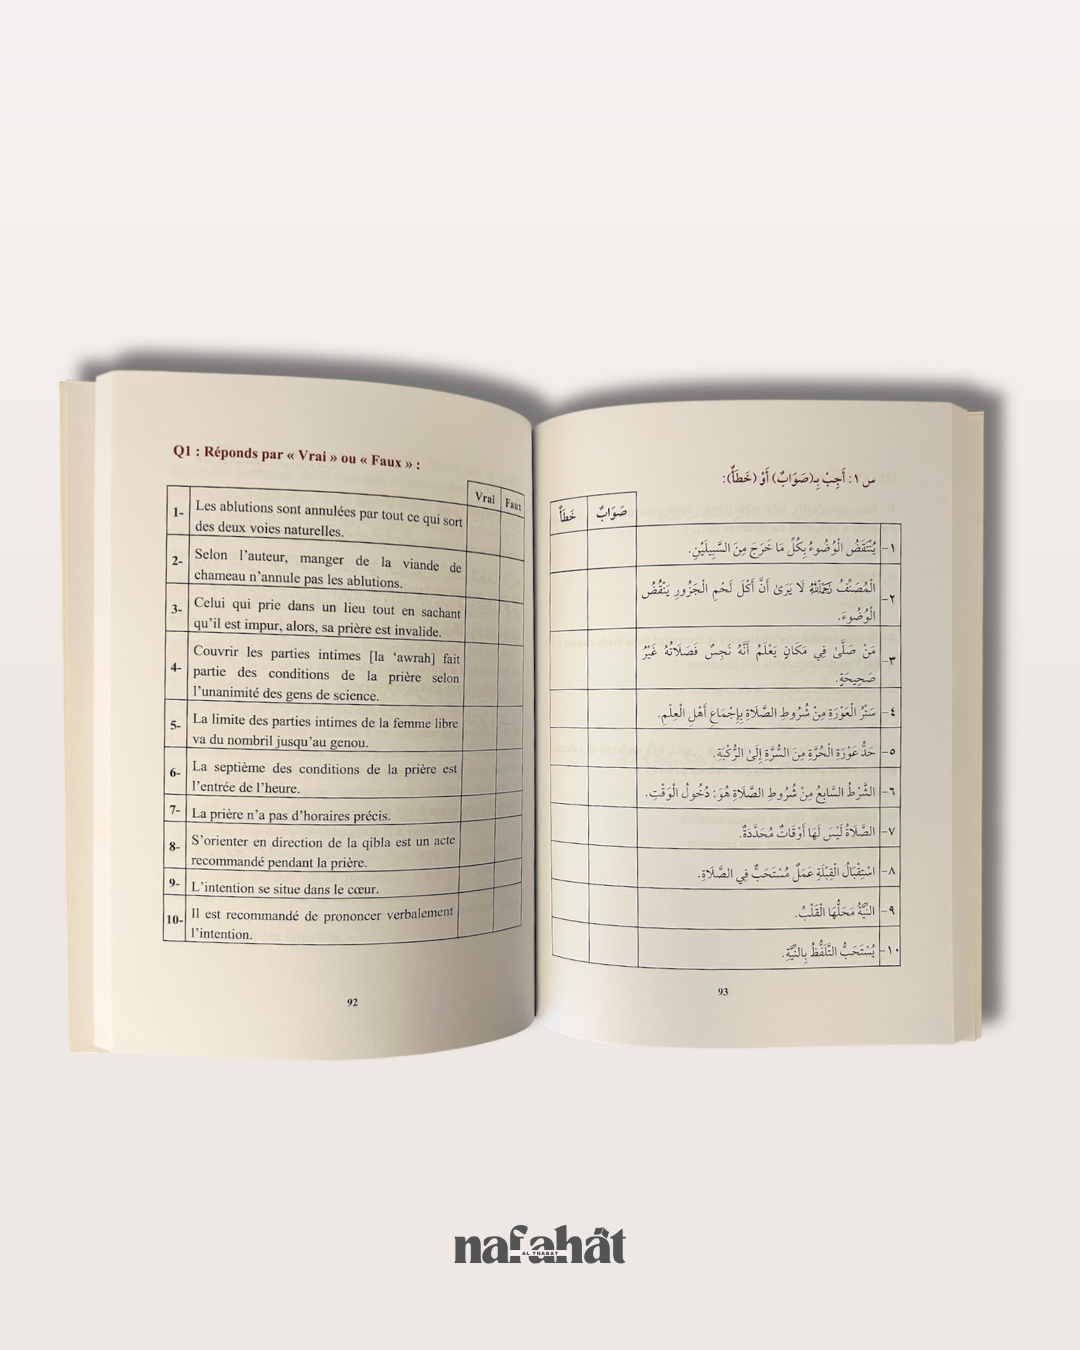 Q1 : Réponds par « Vrai » ou « Faux » :
Vrai Faux
1- Les ablutions sont annulées par tout ce qui sort
des deux voies naturelles.
2- Selon l’auteur, manger de la viande de
chameau n’annule pas les ablutions.
3- Celui qui prie dans un lieu tout en sachant
qu’il est impur, alors, sa prière est invalide.
4- Couvrir les parties intimes [la ‘awrah] fait
partie des conditions de la prière selon
l’unanimité des gens de science.
5- La limite des parties intimes de la femme libre
va du nombril jusqu’au genou.
6- La septième des conditions de la prière est
l’entrée de l’heure.
7- La prière n’a pas d’horaires précis.
8- S’orienter en direction de la qibla est un acte
recommandé pendant la prière.
9- L’intention se situe dans le cœur.
10- Il est recommandé de prononcer verbalement
l’intention.
92
س ١: أَجِبْ بِـ(صَوَابٌ) أَوْ (خَطَأٌ):
صَوَابٌ خَطَأٌ
١- يُنْتَقَضُ الْوُضُوءُ بِكُلِّ مَا خَرَجَ مِنَ السَّبِيلَيْنِ.
٢- الْمُصَنِّفُ رَحِمَهُ اللَّهُ لَا يَرَىٰ أَنَّ أَكْلَ لَحْمِ الْجَزُورِ يَنْقُضُ
الْوُضُوءَ.
٣- مَنْ صَلَّىٰ فِي مَكَانٍ يَعْلَمُ أَنَّهُ نَجِسٌ فَصَلَاتُهُ غَيْرُ
صَحِيحَةٍ.
٤- سَتْرُ الْعَوْرَةِ مِنْ شُرُوطِ الصَّلَاةِ بِإِجْمَاعِ أَهْلِ الْعِلْمِ.
٥- حَدُّ عَوْرَةِ الْحُرَّةِ مِنَ السُّرَّةِ إِلَىٰ الرُّكْبَةِ.
٦- الشَّرْطُ السَّابِعُ مِنْ شُرُوطِ الصَّلَاةِ هُوَ: دُخُولُ الْوَقْتِ.
٧- الصَّلَاةُ لَيْسَ لَهَا أَوْقَاتٌ مُحَدَّدَةٌ.
٨- اسْتِقْبَالُ الْقِبْلَةِ عَمَلٌ مُسْتَحَبٌّ فِي الصَّلَاةِ.
٩- النِّيَّةُ مَحَلُّهَا الْقَلْبُ.
١٠- يُسْتَحَبُّ التَّلَفُّظُ بِالنِّيَّةِ.
93
nafahât
AL THABAT